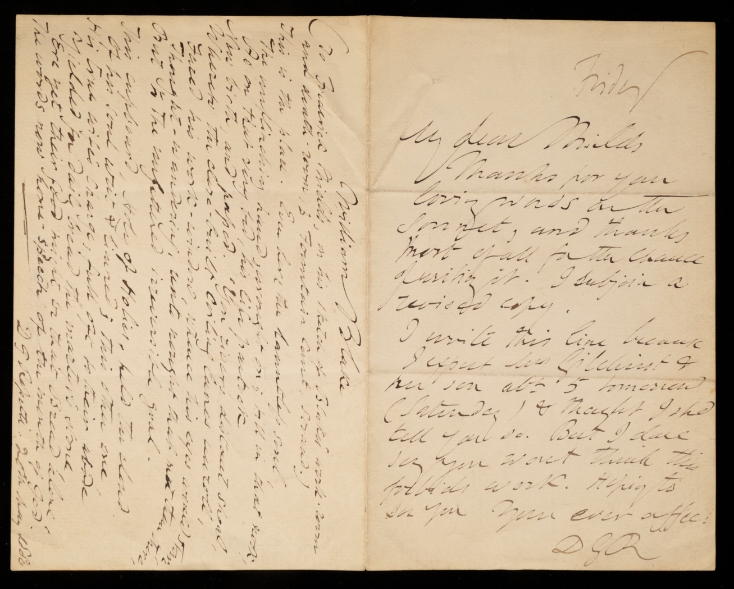 Friday
My dear Shields
Thanks for your
loving words on the
Sonnet, and thanks
most of all for the chance
of writing it. I subjoin a
revised copy.
I write this line because
I expect Mrs Gilchrist &
her son abt 5 tomorrow
(Saturday) & thought I shd
tell you so. But I dare
say you wont think this
forbids work. Hoping to
see you Your ever affec:
DGR
William Blake
(To Frederic Shields, on his sketch of Blake's work-room
and death-room, 3 Fountain Court, Strand.)
This is the place. Even here the dauntless soul,
The unflinching hand, wrought on; till in that nook,
As on that very bed, his life partook
New birth, and passed. Yon river's shoal,
Whereto the close-built coiling lanes unroll,
Faced his work-window, whence his eyes would stare,
Thought-wandering, unto nought that met them there,
But to the unfettered irreversible goal.
This cupboard, Holy of Holies, held the cloud
Of his soul writ & limned; this other one,
His true wife's charge, full oft to their abode
Yielded for daily bread the martyr's stone,
Ere yet their food might be that Bread alone,
The words now home-speech of the mouth of God.
D G Rossetti. May 1880